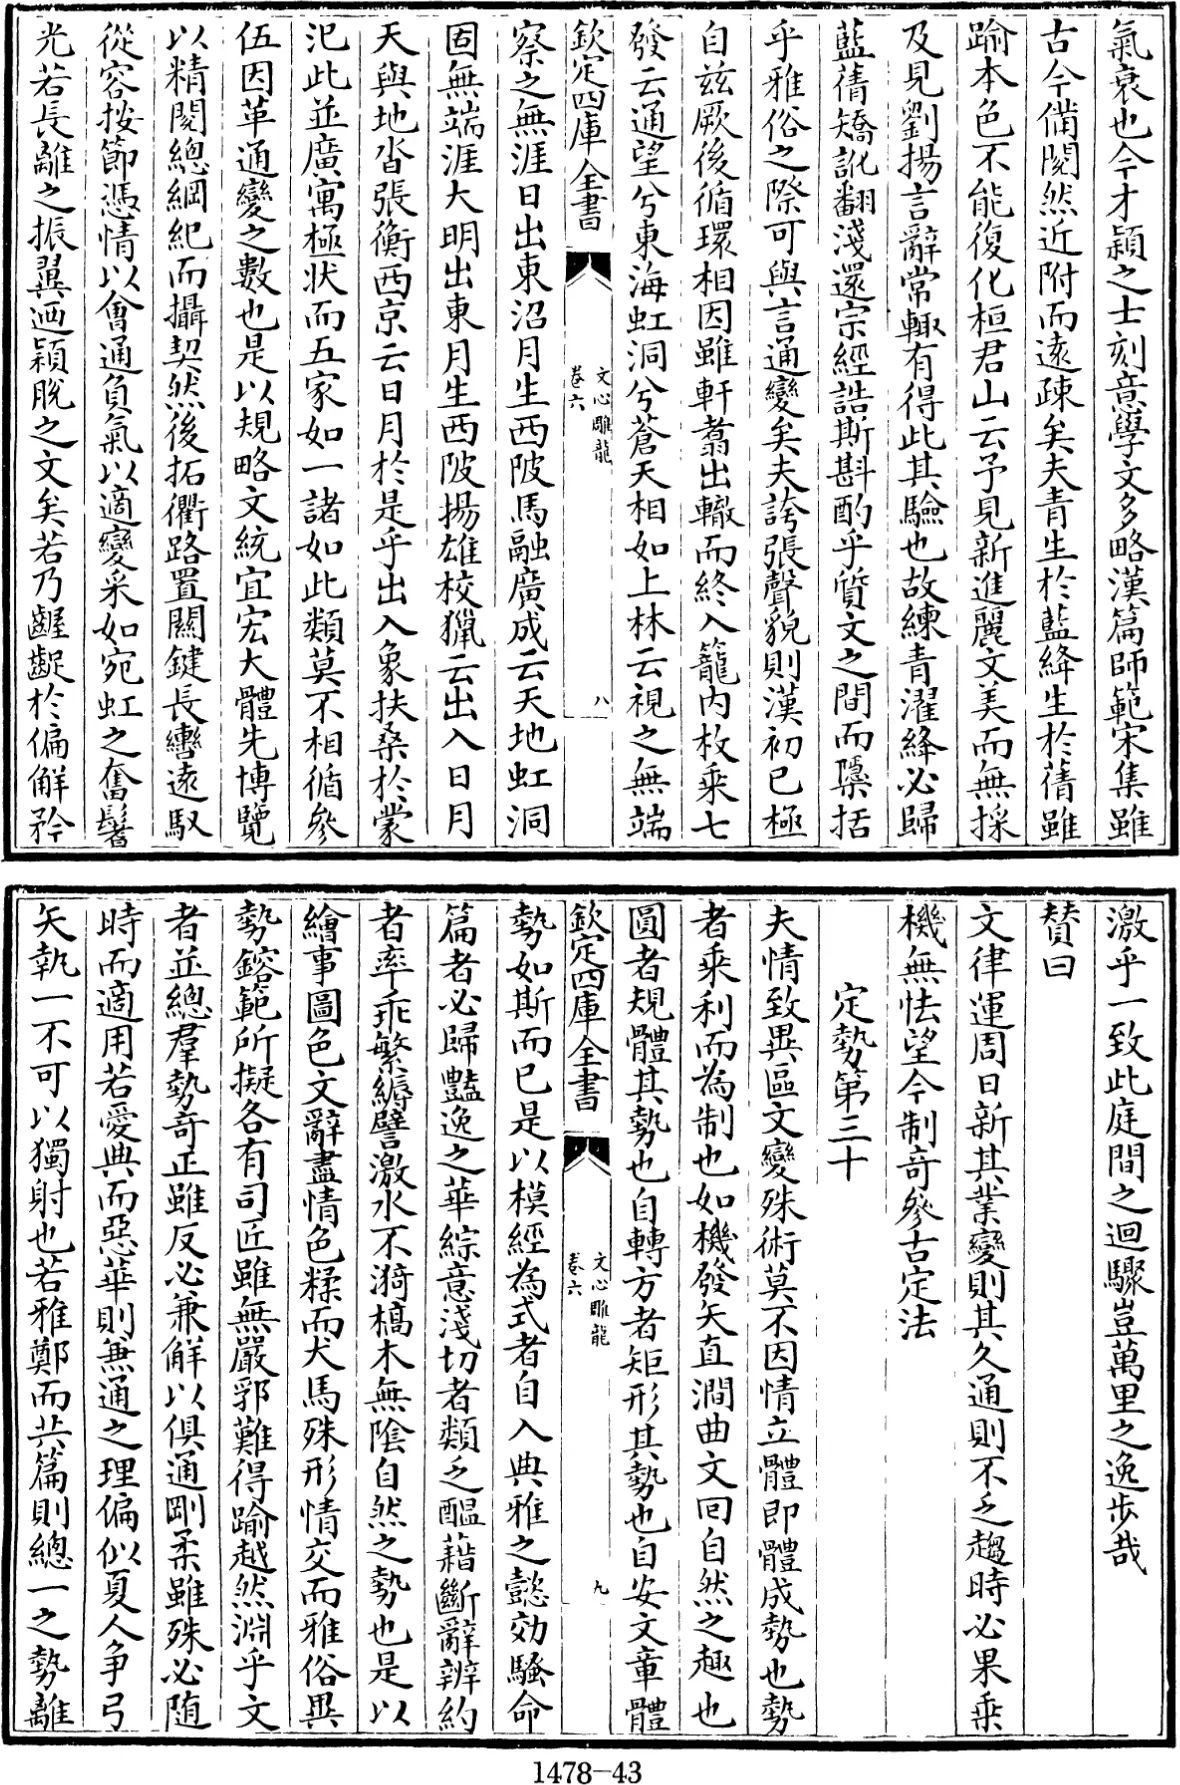 氣衰也今才穎之士刻意學文多略漢篇師範宋集雖
古今備閱然近附而逺疎矣夫青生於藍絳生於蒨雖
踰本色不能復化桓君山云予見新進麗文美而無採
及見劉揚言辭常輙有得此其驗也故練青濯絳必歸
藍蒨矯訛翻淺還宗經誥斯斟酌乎質文之間而隱括
乎雅俗之際可與言通變矣夫誇張聲貌則漢初已極
自茲厥後循環相因雖軒翥出轍而終入籠内枚乗七
發云通望兮東海虹洞兮蒼天相如上林云視之無端
欽定四庫全書
文心雕龍
卷六
八
察之無涯日出東沼月生西陂馬融廣成云天地虹洞
固無端涯大明出東月生西陂揚雄校獵云出入日月
天與地沓張衡西京云日月於是乎出入象扶桑於蒙
汜此並廣寓極状而五家如一諸如此類莫不相循參
伍因革通變之數也是以規略文統宜宏大體先博覽
以精閱總綱紀而攝契然後拓衢路置關鍵長轡逺馭
從容按節憑情以會通負氣以適變采如宛虹之奮鬐
光若長離之振翼迺穎脫之文矣若乃齷齪於偏解矜
激乎一致此庭間之迴驟豈萬里之逸歩哉
賛曰
文律運周日新其業變則其久通則不乏趨時必果乗
機無怯望今制奇參古定法
定勢第三十
夫情致異區文變殊術莫不因情立體即體成勢也勢
者乗利而為制也如機發矢直澗曲文囘自然之趣也
圓者規體其勢也自轉方者矩形其勢也自安文章體
欽定四庫全書
文心雕龍
卷六
九
勢如斯而已是以模經為式者自入典雅之懿効騷命
篇者必歸豔逸之華綜意淺切者類乏醖藉斷辭辨約
者率乖繁縟譬激水不漪槁木無陰自然之勢也是以
繪事圖色文辭盡情色糅而犬馬殊形情交而雅俗異
勢鎔範所擬各有司匠雖無嚴郛難得踰越然淵乎文
者並總羣勢奇正雖反必兼解以俱通剛柔雖殊必随
時而適用若愛典而惡華則兼通之理偏似夏人争弓
矢執一不可以獨射也若雅鄭而共篇則總一之勢離
1478-43